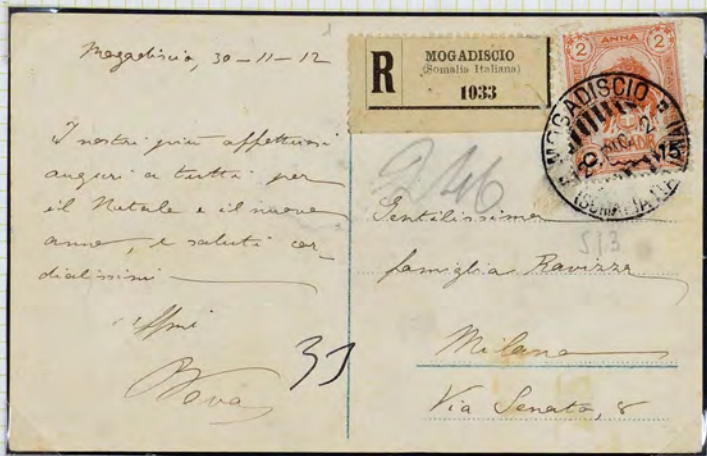 Mogadiscio, 30-11-12
I nostri più affettuosi
auguri a tutti per
il Natale e il nuovo
anno, e saluti cor-
dialissimi
affmi
33
R
MOGADISCIO
(Somalia Italiana)
1033
2 ANNA 2
MOGADISCIO
15
246
513
Gentilissima
famiglia Ravizza
Milano
Via Senato, 8